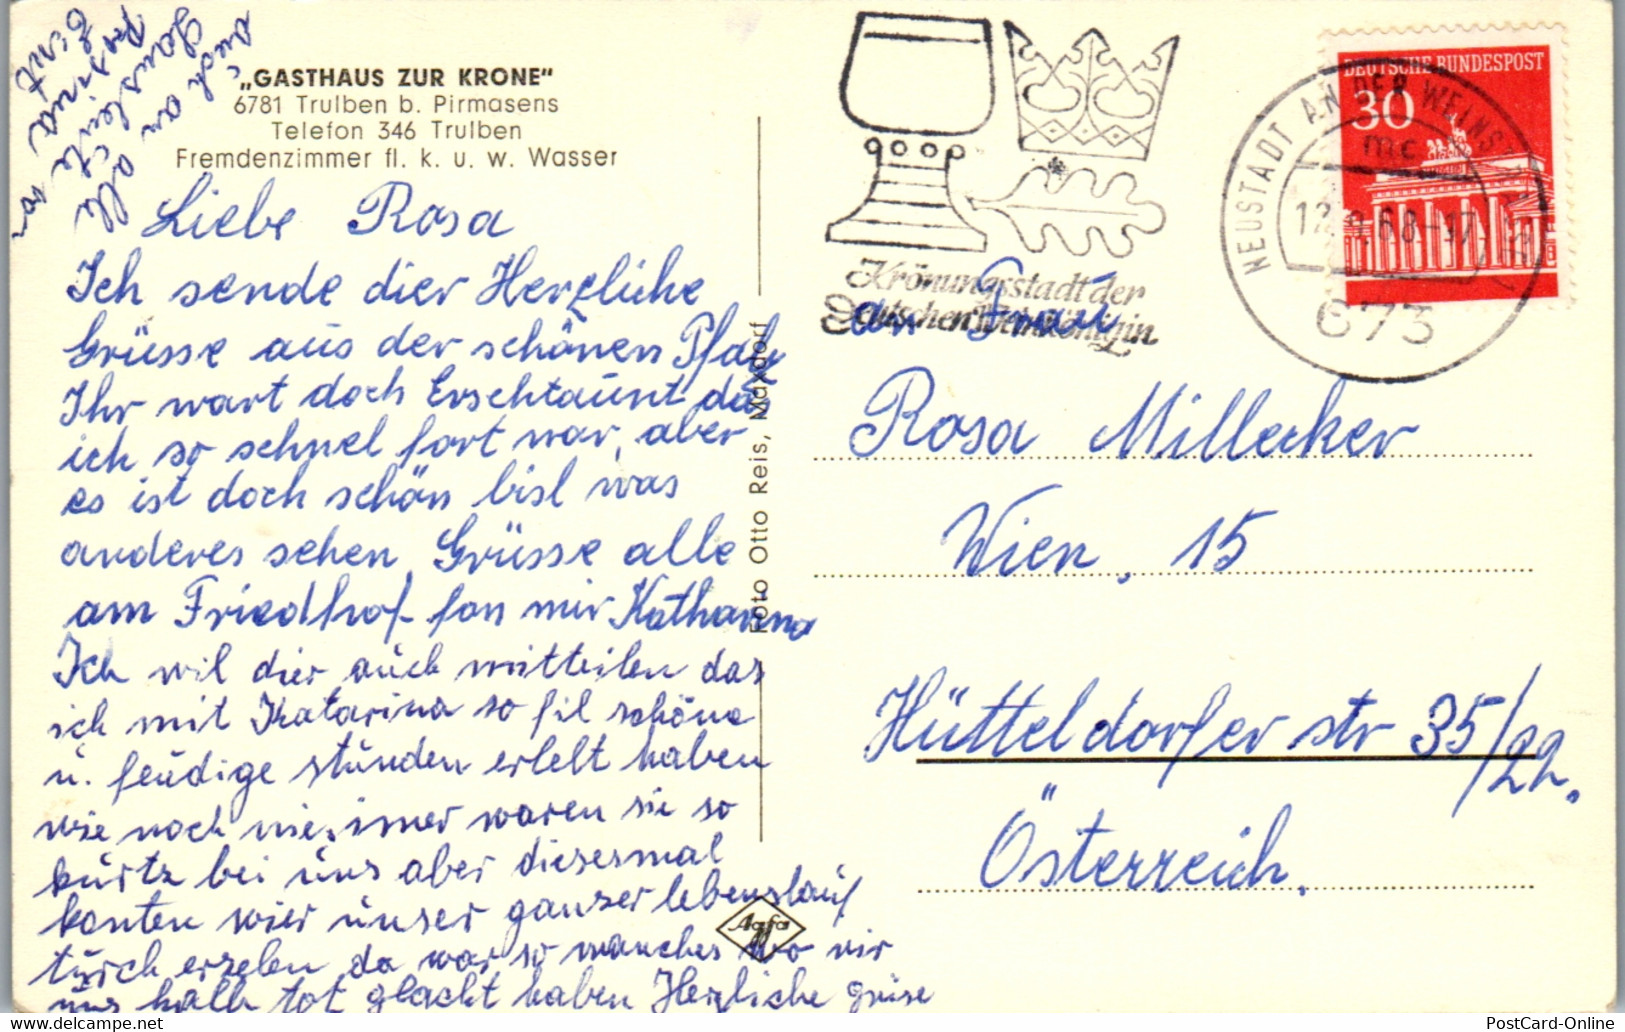 „GASTHAUS ZUR KRONE"
6781 Trulben b. Pirmasens
Telefon 346 Trulben
Fremdenzimmer fl. k. u. w. Wasser
Liebe Rosa
Ich sende dier Herzliche
Grüsse aus der schönen Pfalz
Ihr wart doch Erschtaunt das
ich so schnel fort war, aber
es ist doch schön bisl was
anderes sehen Grüsse alle
am Friedhof fon mir Katharina
Ich wil dier auch mitteilen das
ich mit Katarina so fil schöne
u. feudige stunden erlebt haben
wie noch nie. imer waren sie so
kurtz bei uns aber diesesmal
konten wier unser ganzer lebenslauf
türch erzelen da war so manches wo wir
uns halb tot glacht haben Herzliche grüse
Auch an alle
Hausleute von
Rosina
Ernst
Foto Otto Reis, Maxdorf
Agfa
Krönungsstadt der
Deutschen Weinkönigin
NEUSTADT AN DER WEINSTRASSE
mc
12.9.68-17
673
DEUTSCHE BUNDESPOST
30
an Frau
Rosa Millecker
Wien, 15
Hütteldorfer str 35/22.
Österreich.
PostCard-Online